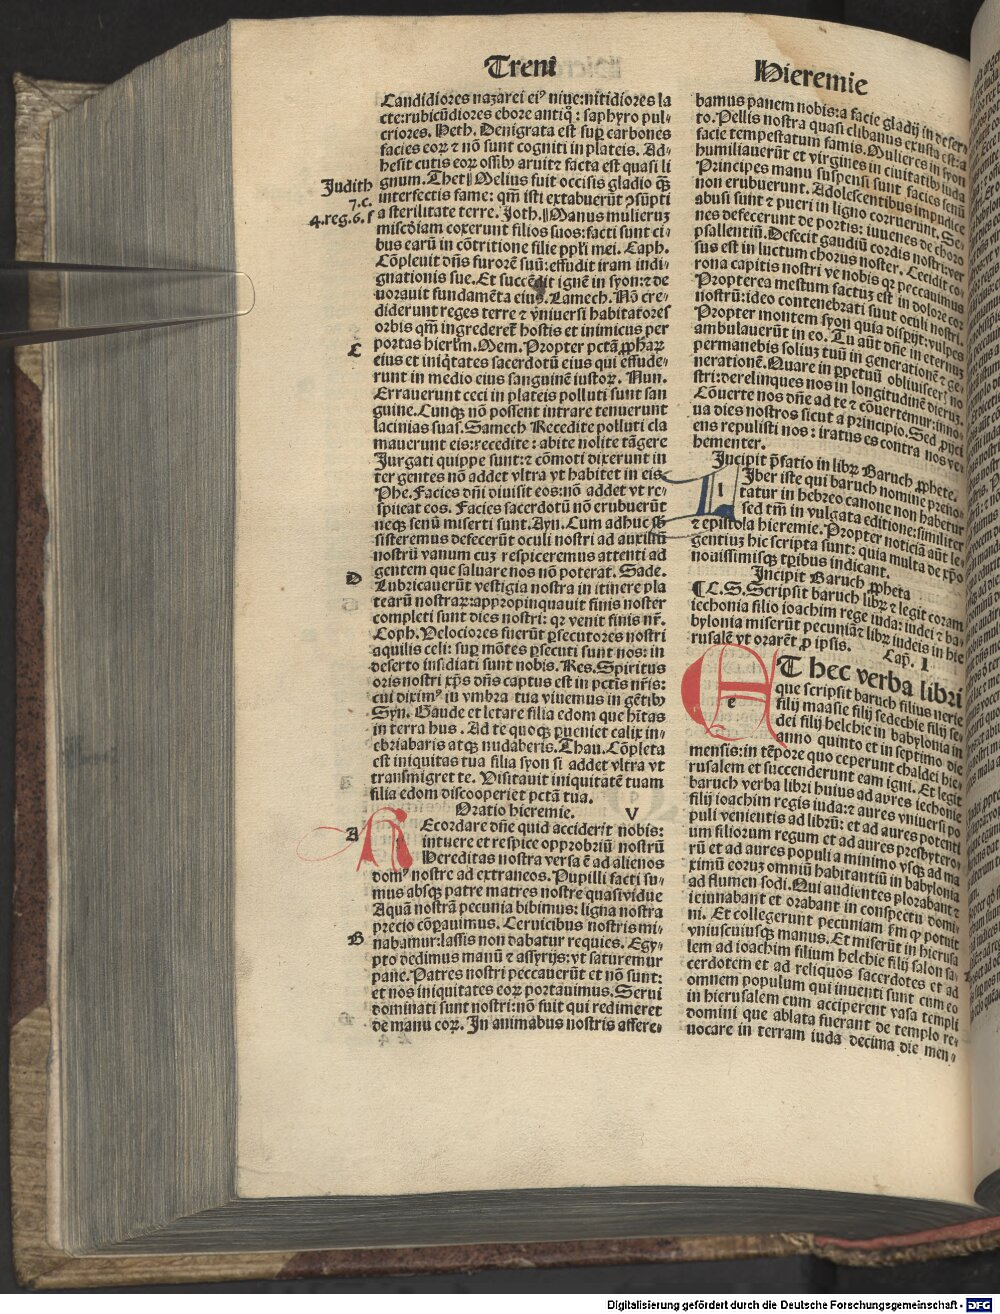 Treni
Hieremie
Candidiores nazarei eiꝰ niue: nitidiores la
cte: rubicūdiores ebore antiq̊: saphyro pul-
criores. Heth. Denigrata est sup̱ carbones
facies eoꝝ ⁊ nō sunt cogniti in plateis. Ad-
hesit cutis eoꝝ ossibꝰ aruit ⁊ facta est quasi li
gnum. Thet ‖ Melius fuit occisis gladio q̄ꝫ
interfectis fame: qm̄ isti extabuerūt ↄsūpti
a sterilitate terre. Joth. ‖ Manus mulierꝫ
misc̄diam coxerunt filios suos: facti sunt ci-
bus earū in cōtritione filie ppl̄i mei. Caph.
Cōpleuit dn̄s furorē suū: effudit iram indi-
gnationis sue. Et succēdit ignē in syon: ⁊ de
uorauit fundamēta eius. Lamech. Nō cre-
diderunt reges terre ⁊ vniuersi habitatores
orbis qm̄ ingrederet᷑ hostis et inimicus per
portas hierl̄m. Mem. Propter pctā ꝓphaꝝ
eius et iniq̇tates sacerdotū eius qui effude-
runt in medio eius sanguinē iustoꝝ. Nun.
Errauerunt ceci in plateis polluti sunt san
guine. Cunqꝫ nō possent intrare tenuerunt
lacinias suas. Samech Recedite polluti cla
mauerunt eis: recedite: abite nolite tāgere
Jurgati quippe sunt: ⁊ cōmoti dixerunt in
ter gentes nō addet vltra vt habitet in eis
Phe. Facies dn̄i diuisit eos: nō addet vt re-
spiciat eos. Facies sacerdotū nō erubuerūt
neqꝫ senū miserti sunt. Ayn. Cum adhuc sb̄
sisteremus defecerūt oculi nostri ad auxiliū
nostrū vanum cuꝫ respiceremus attenti ad
gentem que saluare nos nō poterat. Sade.
Lubricauerūt vestigia nostra in itinere pla
tearū nostraꝝ: appropinquauit finis noster
completi sunt dies nostri: qꝛ venit finis nr̄.
Coph. Velociores fuerūt ꝑsecutores nostri
aquilis celi: sup̱ mōtes ꝑsecuti sunt nos: in
deserto insidiati sunt nobis. Res. Spiritus
oris nostri xp̄s dn̄s captus est in pctīs nr̄is:
cui diximꝰ in vmbra tua viuemus in gētibꝰ
Syn. Gaude et letare filia edom que hītas
in terra hus. Ad te quoqꝫ ꝑueniet calix in-
ebriaberis atqꝫ nudaberis. Thau. Cōpleta
est iniquitas tua filia syon si addet vltra vt
transmigret te. Visitauit iniquitatē tuam
filia edom discooperiet pctā tua.
Oratio hieremie. V
Recordare dn̄e quid acciderit nobis:
intuere et respice opprobriū nostrū
Hereditas nostra versa ē ad alienos
domꝰ nostre ad extraneos. Pupilli facti su-
mus absqꝫ patre matres nostre quasi vidue
Aquā nostrā pecunia bibimus: ligna nostra
precio cōparauimus. Ceruicibus nostris mi-
nabamur: lassis non dabatur requies. Egy-
pto dedimus manū ⁊ assyrijs: vt saturemur
pane. Patres nostri peccauerūt et nō sunt:
et nos iniquitates eoꝝ portauimus. Serui
dominati sunt nostri: nō fuit qui redimeret
de manu eoꝝ. In animabus nostris affere-
Judith
7.c.
4.reg.6.f
C
D
A
B
bamus panem nobis: a facie gladij in deser-
to. Pellis nostra quasi clibanus exusta est: a
facie tempestatum famis. Mulieres in syon
humiliauerūt et virgines in ciuitatibꝰ iuda
Principes manu suspensi sunt facies senū
non erubuerunt. Adolescentibus impudice
abusi sunt ⁊ pueri in ligno corruerunt. Se-
nes defecerunt de portis: iuuenes de choro
psallentiū. Defecit gaudiū cordis nostri: ver
sus est in luctum chorus noster. Cecidit co-
rona capitis nostri ve nobis qꝛ peccauimus
Propterea mestum factuꝫ est in dolore cor
nostrū: ideo contenebrati sunt oculi nostri.
Propter montem syon quia disperijt: vulpes
ambulauerūt in eo. Tu aūt dn̄e in eternuꝫ
permanebis soliuꝫ tuū in generationē ⁊ ge-
nerationē. Quare in ꝑpetuū obliuisceris no
stri: derelinques nos in longitudinē dierum.
Cōuerte nos dn̄e ad te ⁊ cōuertemur: inno-
ua dies nostros sicut a principio. Sed ꝓijci
ens repulisti nos: iratus es contra nos ve-
hementer.
Incipit p̄fatio in libꝝ Baruch ꝓphete.
Liber iste qui baruch nomine preno-
tatur in hebreo canone non habetur
sed tm̄ in vulgata editione: similiter
⁊ epistola hieremie. Propter noticiā aūt le-
gentiuꝫ hic scripta sunt: quia multa de xp̄o
nouissimisqꝫ tꝑibus indicant.
Incipit Baruch ꝓpheta
¶ L. S. Scripsit baruch libꝝ ⁊ legit coram
iechonia filio ioachim rege iuda: iudei ⁊ ba-
bylonia miserūt pecuniā ⁊ libꝝ iudeis in hie
rusalē vt orarēt ꝓ ipsis. Cap̱. I
ET hec verba libri
que scripsit baruch filius nerie
filij maasie filij sedechie filij se-
dei filij helchie in babylonia in
anno quinto et in septimo die
mensis: in tēpore quo ceperunt chaldei hie-
rusalem et succenderunt eam igni. Et legit
baruch verba libri huius ad aures iechonie
filij ioachim regis iuda: ⁊ aures vniuersi po
puli venientis ad librū: et ad aures potenti
um filiorum regum et ad aures presbytero-
rū et ad aures populi a minimo vsqꝫ ad ma
ximū eoruꝫ omniū habitantiū in babylonia
ad flumen sodi. Qui audientes plorabant ⁊
ieiunabant et orabant in conspectu domi-
ni. Et collegerunt pecuniam fm̄ qꝫ potuit
vniuscuiusqꝫ manus. Et miserūt in hierusa
lem ad ioachim filium helchie filij salon sa-
cerdotem et ad reliquos sacerdotes et ad
omnem populum qui inuenti sunt cum eo
in hierusalem cum acciperent vasa templi
domini que ablata fuerant de templo re-
uocare in terram iuda decima die men-
Digitalisierung gefördert durch die Deutsche Forschungsgemeinschaft - DFG